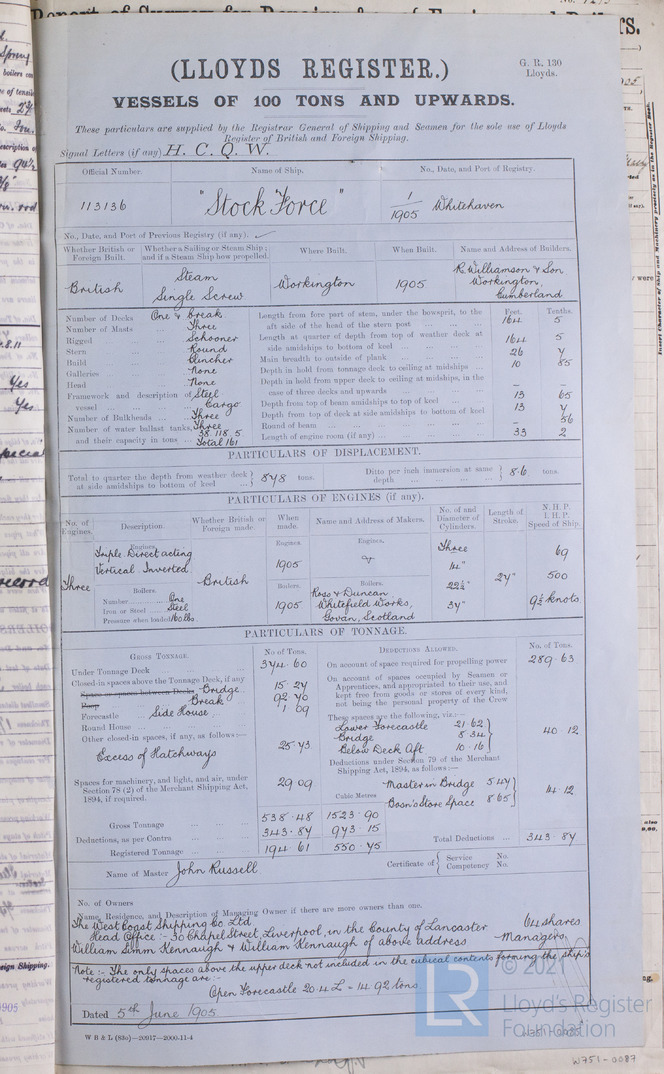 (LLOYDS REGISTER.)
G. R. 130
Lloyds.
VESSELS OF 100 TONS AND UPWARDS.
These particulars are supplied by the Registrar General of Shipping and Seamen for the sole use of Lloyds
Register of British and Foreign Shipping.
Signal Letters (if any) H. C. Q. W.
Official Number. Name of Ship. No., Date, and Port of Registry.
113136 "Stock Force" 1/1905 Whitehaven
No., Date, and Port of Previous Registry (if any).
Whether British or Foreign Built. Whether a Sailing or Steam Ship; and if a Steam Ship how propelled. Where Built. When Built. Name and Address of Builders.
British Steam Single Screw Workington 1905 R. Williamson & Son Workington, Cumberland
Number of Decks One & break
Number of Masts Three
Rigged Schooner
Stern Round
Build Clincher
Galleries None
Head None
Framework and description of vessel Steel Cargo
Number of Bulkheads Three
Number of water ballast tanks, Three
and their capacity in tons 38.118.5 Total 161
Feet. Tenths.
Length from fore part of stem, under the bowsprit, to the aft side of the head of the stern post 164 5
Length at quarter of depth from top of weather deck at side amidships to bottom of keel 164 5
Main breadth to outside of plank 26 7
Depth in hold from tonnage deck to ceiling at midships 10 85
Depth in hold from upper deck to ceiling at midships, in the case of three decks and upwards – –
Depth from top of beam amidships to top of keel 13 65
Depth from top of deck at side amidships to bottom of keel 13 7
Round of beam – 56
Length of engine room (if any) 33 2
PARTICULARS OF DISPLACEMENT.
Total to quarter the depth from weather deck at side amidships to bottom of keel 878 tons. Ditto per inch immersion at same depth 8.6 tons.
PARTICULARS OF ENGINES (if any).
No. of Engines. Description. Whether British or Foreign made. When made. Name and Address of Makers. No. of and Diameter of Cylinders. Length of Stroke. N.H.P. I.H.P. Speed of Ship.
Engines. Engines. Engines.
Three Triple. Direct acting Vertical Inverted. British 1905 Three 14" 22½" 37" 24" 69 500 9½ knots
Boilers. Boilers. Boilers.
Number One
Iron or Steel Steel
Pressure when loaded 160 lbs
1905 Ross & Duncan, Whitefield Works, Govan, Scotland
PARTICULARS OF TONNAGE.
GROSS TONNAGE. No of Tons.
Under Tonnage Deck 374.60
Closed-in spaces above the Tonnage Deck, if any
Space or spaces between Decks Bridge 15.27
Poop Break 92.70
Forecastle Side House 1.09
Round House
Other closed-in spaces, if any, as follows:—
Excess of Hatchways 25.73
Spaces for machinery, and light, and air, under Section 78 (2) of the Merchant Shipping Act, 1894, if required. 29.09
Cubic Metres
Gross Tonnage 538.48 1523.90
Deductions, as per Contra 343.87 973.15
Registered Tonnage 194.61 550.75
DEDUCTIONS ALLOWED. No. of Tons.
On account of space required for propelling power 289.63
On account of spaces occupied by Seamen or Apprentices, and appropriated to their use, and kept free from goods or stores of every kind, not being the personal property of the Crew
These spaces are the following, viz.:—
Lower Forecastle 21.62
Bridge 8.34
Below Deck Aft 10.16
40.12
Deductions under Section 79 of the Merchant Shipping Act, 1894, as follows:—
Master in Bridge 5.47
Bosn's Store Space 8.65
14.12
Total Deductions 343.87
Name of Master John Russell Certificate of Service No. Competency No.
No. of Owners
Name, Residence, and Description of Managing Owner if there are more owners than one.
The West Coast Shipping Co. Ltd. 64 shares
Head Office :- 30 Chapel Street, Liverpool, in the County of Lancaster
William Simm Kennaugh & William Kennaugh of above address Managers
Note :- The only spaces above the upper deck not included in the cubical contents forming the ship's
registered tonnage are :-
Open Forecastle 20.4 L = 14.92 tons
Dated 5th June 1905
W B & L (83o)—20917—2000-11-4
© 2021
LR
Lloyd's Register
Foundation
W751-0087